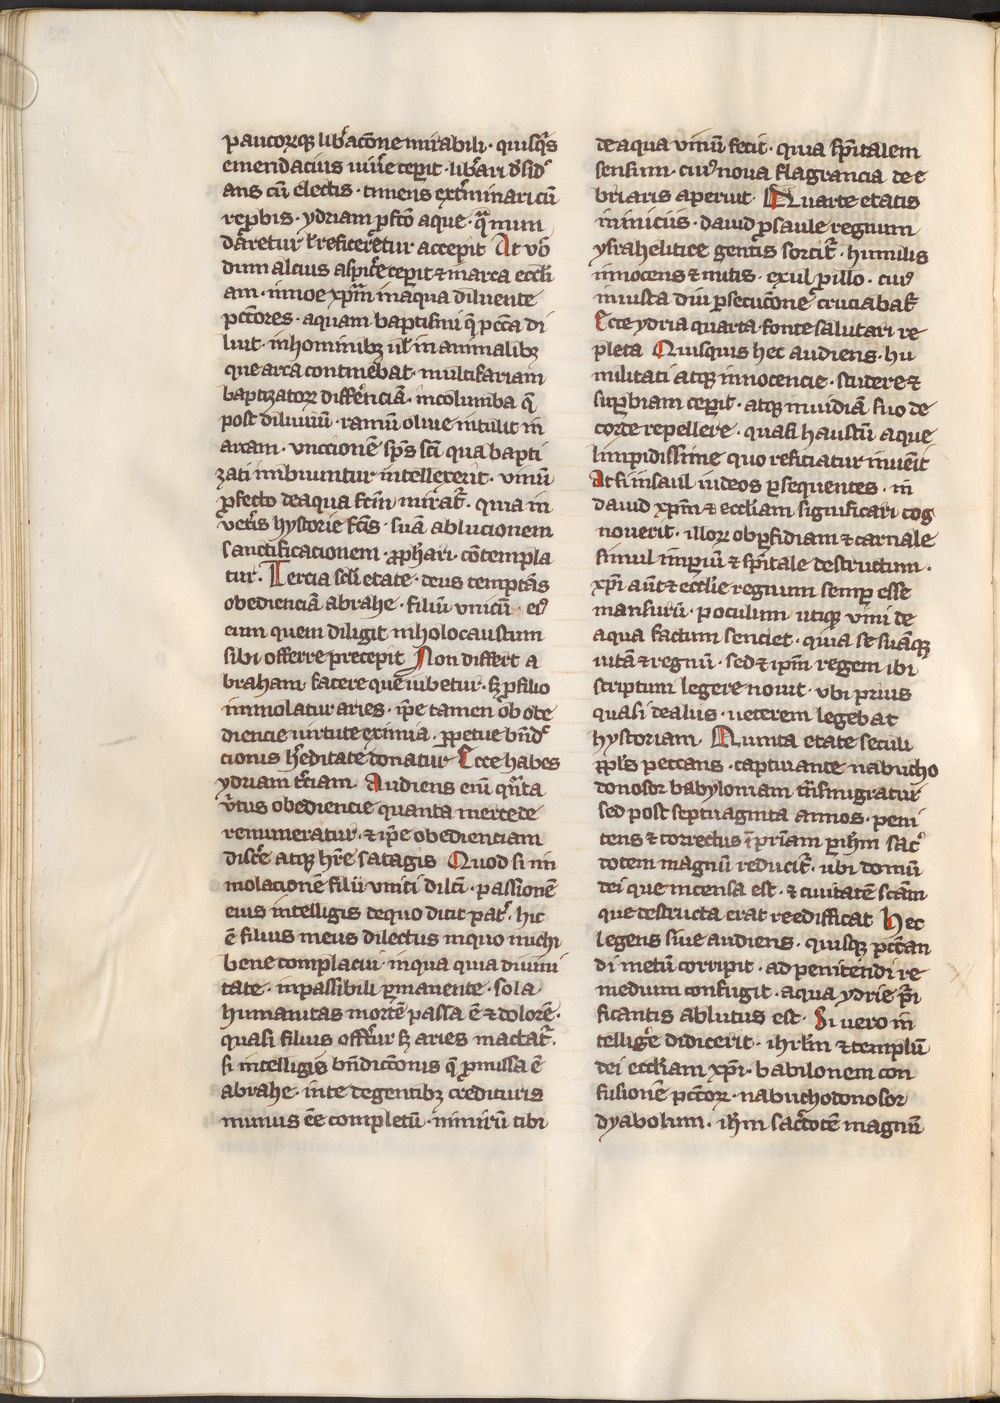 paucorꝫqꝫ lib̾acōne mirabili · quisq̾s
emendacius uiu̾e cepit · lib̾ari d̾sid̾
ans cū electis · timens ext̾minari cū
rep̱bis · ydriam ꝑfc̄o aque · q̄ mun
dāretur ƚ reficeretur accepit At vō
dum alcius aspic̾e cepit ⁊ in arca eccl̄i
am · in noe xp̄m in aqua diluente
pcc̄ores · aquam baptismi q̄ pcc̄a di
luit · in hominibꝫ ul̾ in animalibꝫ
que arca continebat · multifariam
baptizatoꝝ diff̾enciā · in columba q̄
post diluuiū · ramū oliue intulit in
arcam · vnccionē sp̄s sc̄i qua bapti
zati imbuuntur intellexerit · vinū
ꝓfecto de aqua fc̄m mirat̾ · quia in
vet̾is hystorie fc̄is · suā ablucionem
sanctificacionem · ꝓph̄ari · cōtempla
tur · Tercia sc̄li etate · deus temptās
obedienciā abrahe · filiū vnicū · ei⁹
eum quem diligit in holocaustum
sibi offerre precepit Non differt a
braham facere que iubetur · sꝫ ꝓ filio
immolatur aries · ip̄e tamen ob obe
diencie uirtute eximia · ꝑpetue bn̄d̾
cionis h̾editate donatur Ecce habes
ydriam t̾ciam Audiens eni̅ qn̄ta
v̾tus obediencie quanta mercede
remuneratur · ⁊ ip̄e obedienciam
disc̾e atqꝫ hr̄e satagis Quod si im
molacionē filii vnici dilc̄i · passionē
eius intelligis de quo dicit pat̾ · hic
ē filius meus dilectus in quo michi
bene complacui · in qua quia diuini
tate · inpassibili ꝑmanente · sola
humanitas mortē passa ē ⁊ dolorē ·
quasi filius off̾tur sꝫ aries mactat̾ ·
si intelligis bn̄dicc̄onis q̄ ꝓmissa ē
abrahe · in te de gentibꝫ credituris
munus ēe completū · nimirū tibi
de aqua vinū fecit · quia sp̄italem
sensum · cui⁹ noua flagrancia dee
briaris aperuit · Quarte etatis
in iniciis · dauid ꝑ saule regnum
ysrahelitice gentis sortit̾ · humilis
innocens ⁊ mitis · exul ꝓ illo · cui⁹
iniusta diu ꝑsecucōne cruciabat̾
Ecce ydria quarta fonte salutari re
pleta Quisquis hec audiens · hu
militati atqꝫ innocencie · studere ⁊
suꝑbiam cepit · atqꝫ inuidiā suo de
corde repellere · quasi haustū aque
limpidissime quo reficiatur inuenit
At si in saul iudeos ꝑsequentes · in
dauid xp̄m ⁊ eccl̄iam significari cog
nouerit · illoꝝ ob ꝑfidiam ⁊ carnale
simul imꝑiū ⁊ sp̄itale destructum ·
xp̄i aūt ⁊ ecclie regnum semꝑ esse
mansurū · poculum utiqꝫ vini de
aqua factum senciet · quia se suāqꝫ
uitā ⁊ regnū · sed ⁊ ip̄m regem ibi
scriptum legere nouit · vbi prius
quasi de aliis · ueterem legebat
hystoriam Quinta etate seculi
ppl̄s peccans · captiuante nabucho
donosor babyloniam tn̄smigratur
sed post septuaginta annos · peni
tens ⁊ correctus ī pr̄iam ꝑ ih̄m sac̾
dotem magnū reducit̾ · ubi domū
dei que incensa est · ⁊ ciuitatē sc̄am
que destructa erat reedifficat Hec
legens siue audiens · quisqꝫ pcc̄an
di metū corripit · ad penitendi re
medium confugit · aqua ydrie pū̄i
ficantis ablutus est · Si uero in
tellig̾e didicerit · ihrl̄m ⁊ templū
dei eccl̄iam xp̄i · babilonem con
fusionē pcc̄oꝝ · nabuchodonosor
dyabolum · ih̄m sac̾dotē magnū